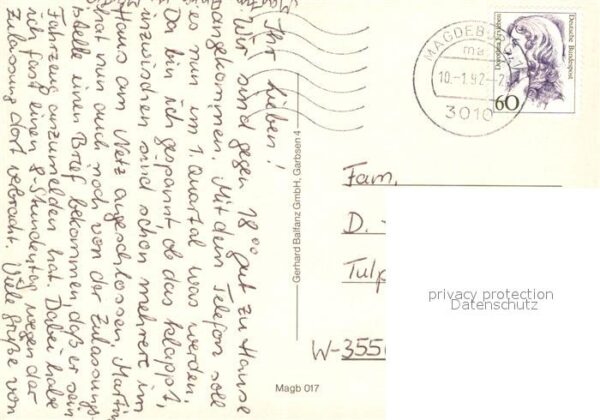 Ihr Lieben!
Wir sind gegen 18⁰⁰ gut zu Hause
angekommen. Mit dem Telefon soll
es nun im 1. Quartal was werden.
Da bin ich gespannt, ob das klappt,
inzwischen sind schon mehrere im
Haus am Netz angeschlossen. Martin
hat nun auch noch von der Zulassungs
stelle einen Brief bekommen daß er sein
Fahrzeug anzumelden hat. Dabei habe
ich fast einen 8 Stundentag wegen der
Zulassung dort verbracht. Viele Grüße von
Gerhard Balfanz GmbH, Garbsen 4
Magb 017
MAGDEB
ma
10.-1.92-2
3010
Deutsche Bundespost
60
Fam.
D.
Tulp
W-355
privacy protection
Datenschutz